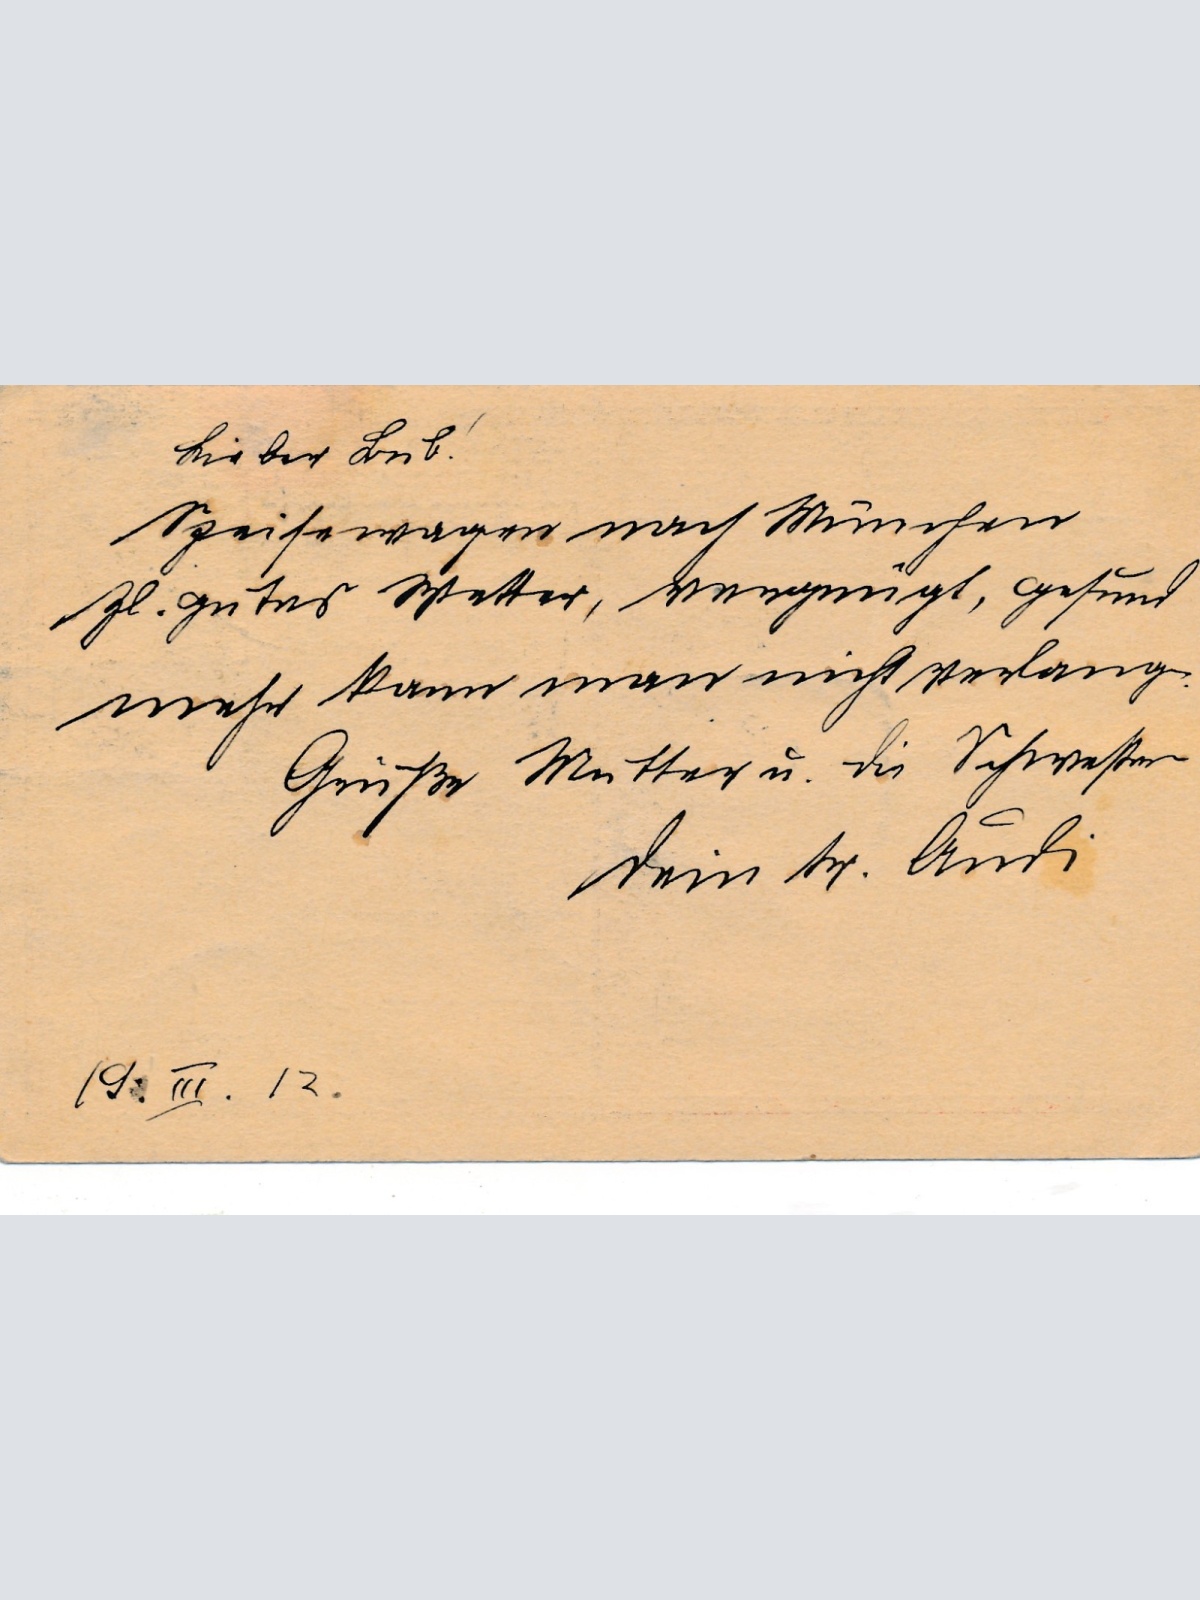 Lieber Bub!
Speisewagen nach München
zl. gutes Wetter, vergnügt, gesund
mehr kann man nicht verlang.
Grüße Mutter u. die Schwestern
Dein tr. Audi
19. III. 12.